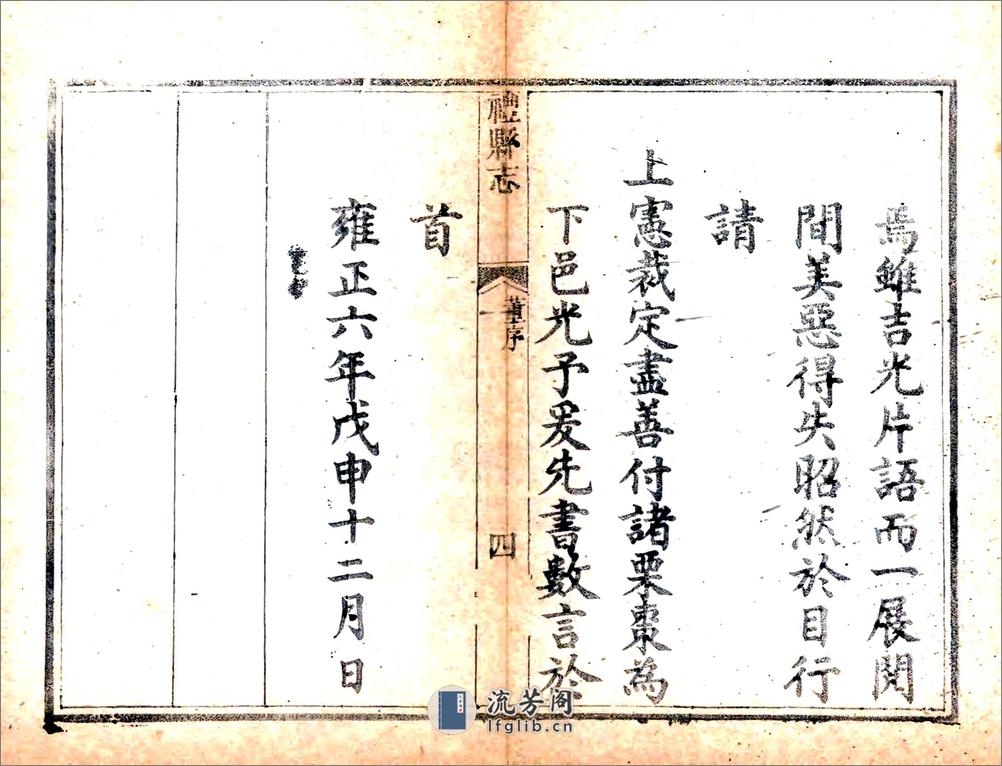 焉雖吉光片語而一展閱
間美惡得失昭然於目行
請
上憲裁定盡善付諸栗棗為
下邑光予爰先書數言於
禮縣志
董序
四
首
雍正六年戊申十二月日
流芳阁
lfglib.cn